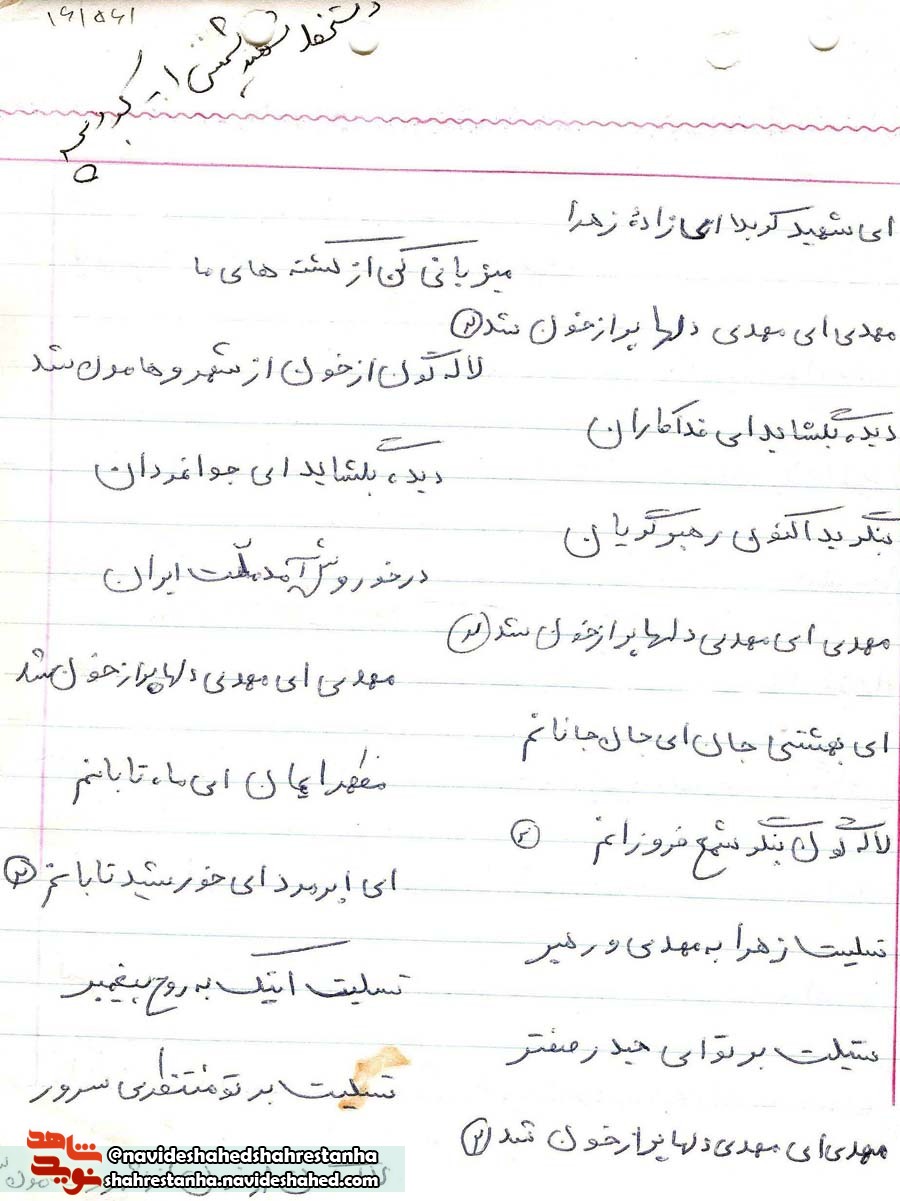 ۱۶/۵۶۱
دستخط شهید شمس ا...
ای شهید کربلا ای زادهٔ زهرا
میزبانی کن از کشته های ما
مهدی ای مهدی دلها پر از خون شد ②
لاله گون از خون از شهر و هامون شد
دیده بگشاید ای فداکاران
دیده بگشاید ای جوانمردان
بنگرید اکنون رهبر گریان
در خوروش آمد ملّت ایران
مهدی ای مهدی دلها پر از خون شد ②
مهدی ای مهدی دلها پر از خون شد
ای بهشتی جان ای جان جانانم
مظهر ایمان ای ماه تابانم
لاله گون بنگر شمع فروزانم ②
ای ابرمرد ای خورشید تابانم ②
تسلیت از زهرا به مهدی و رهبر
تسلیت اینک به روح پیغمبر
ستیلت بر تو ای حیدر صفتر
تسلیت بر تو منتظری سرور
مهدی ای مهدی دلها پر از خون شد ②
شاهد نوید
@navideshahedshahrestanha
shahrestanha.navideshahed.com